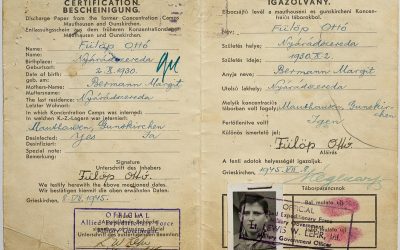 CERTIFICATION.
BESCHEINIGUNG.
Discharge Paper from the former Concentration Camps
Mauthausen and Gunskirchen.
Entlassungsschein aus dem früheren Konzentrationslager
Mauthausen und Gunskirchen.
Name
Name: Fülöp Ottó
Birthplace: Nyárádszereda
Geburtsort:
Date of birth: 2. X. 1930.
geb. am:
Mothers-Name: Bermann Margit
Muttersname:
The last residence: Nyárádszereda
Letzter Wohnort:
In which Concentration Camps was interned:
In welchen K.-Z.-Lagern war interniert:
Mauthausen, Gunskirchen
Desinfected: Yes Ja
Desinfiziert:
Special note:
Bemerkung:
Signature
Unterschrift des Inhabers
Fülöp Ottó.
We testify herewith the above mentioned dates.
Wir bestätigen hiermit die oben erwähnten Daten.
Grieskirchen, 8. VIII. 1945.
OFFICIAL
Allied Expeditionary Force
Military Government
IGAZOLVÁNY.
Elbocsájtó levél a mauthauseni és gunskircheni Koncentrációs táborokból.
Név: Fülöp Ottó
Születés helye: Nyárádszereda
Születés ideje: 1930. X. 2.
Anyja neve: Bermann Margit
Utolsó lakhely: Nyárádszereda
Melyik koncentrációs
táborban volt internálva: Mauthausen, Gunskirchen
Fertőtlenítve volt: Igen
Különös ismertető jel:
Fülöp Ottó.
Aláírás
A fenti adatok helyességét igazoljuk.
Grieskirchen, 1945. VIII. 8.
Táborparancsnok
OFFICIAL
Allied Expeditionary Force
Military Government
LEWIS W. LEER,
Military Government Officer
Bal mutató ujj